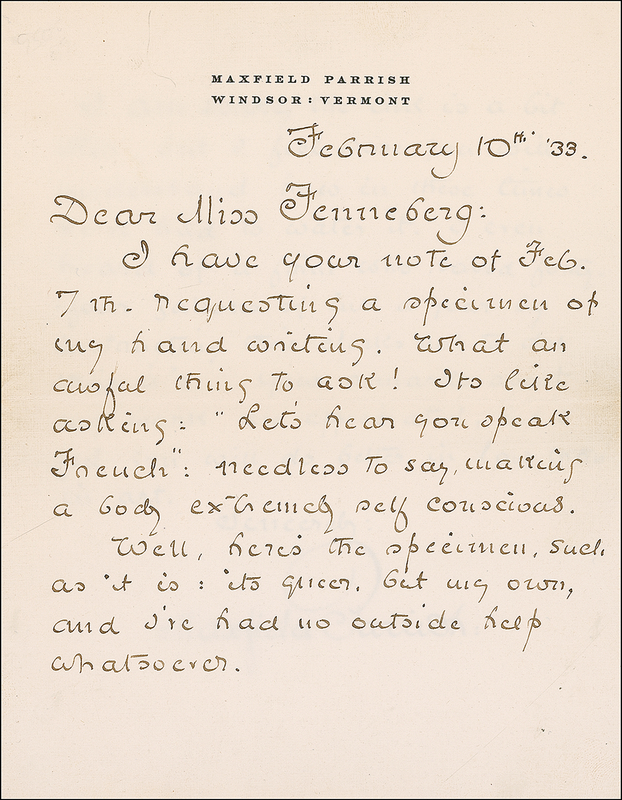 MAXFIELD PARRISH
WINDSOR : VERMONT
February 10th. '33.
Dear Miss Fenneberg:
I have your note of Feb.
7th. requesting a specimen of
my hand writing. What an
awful thing to ask! Its like
asking: "Let's hear you speak
French": needless to say, making
a body extremely self conscious.
Well, here's the specimen, such
as it is: its queer, but my own,
and I've had no outside help
whatsoever.